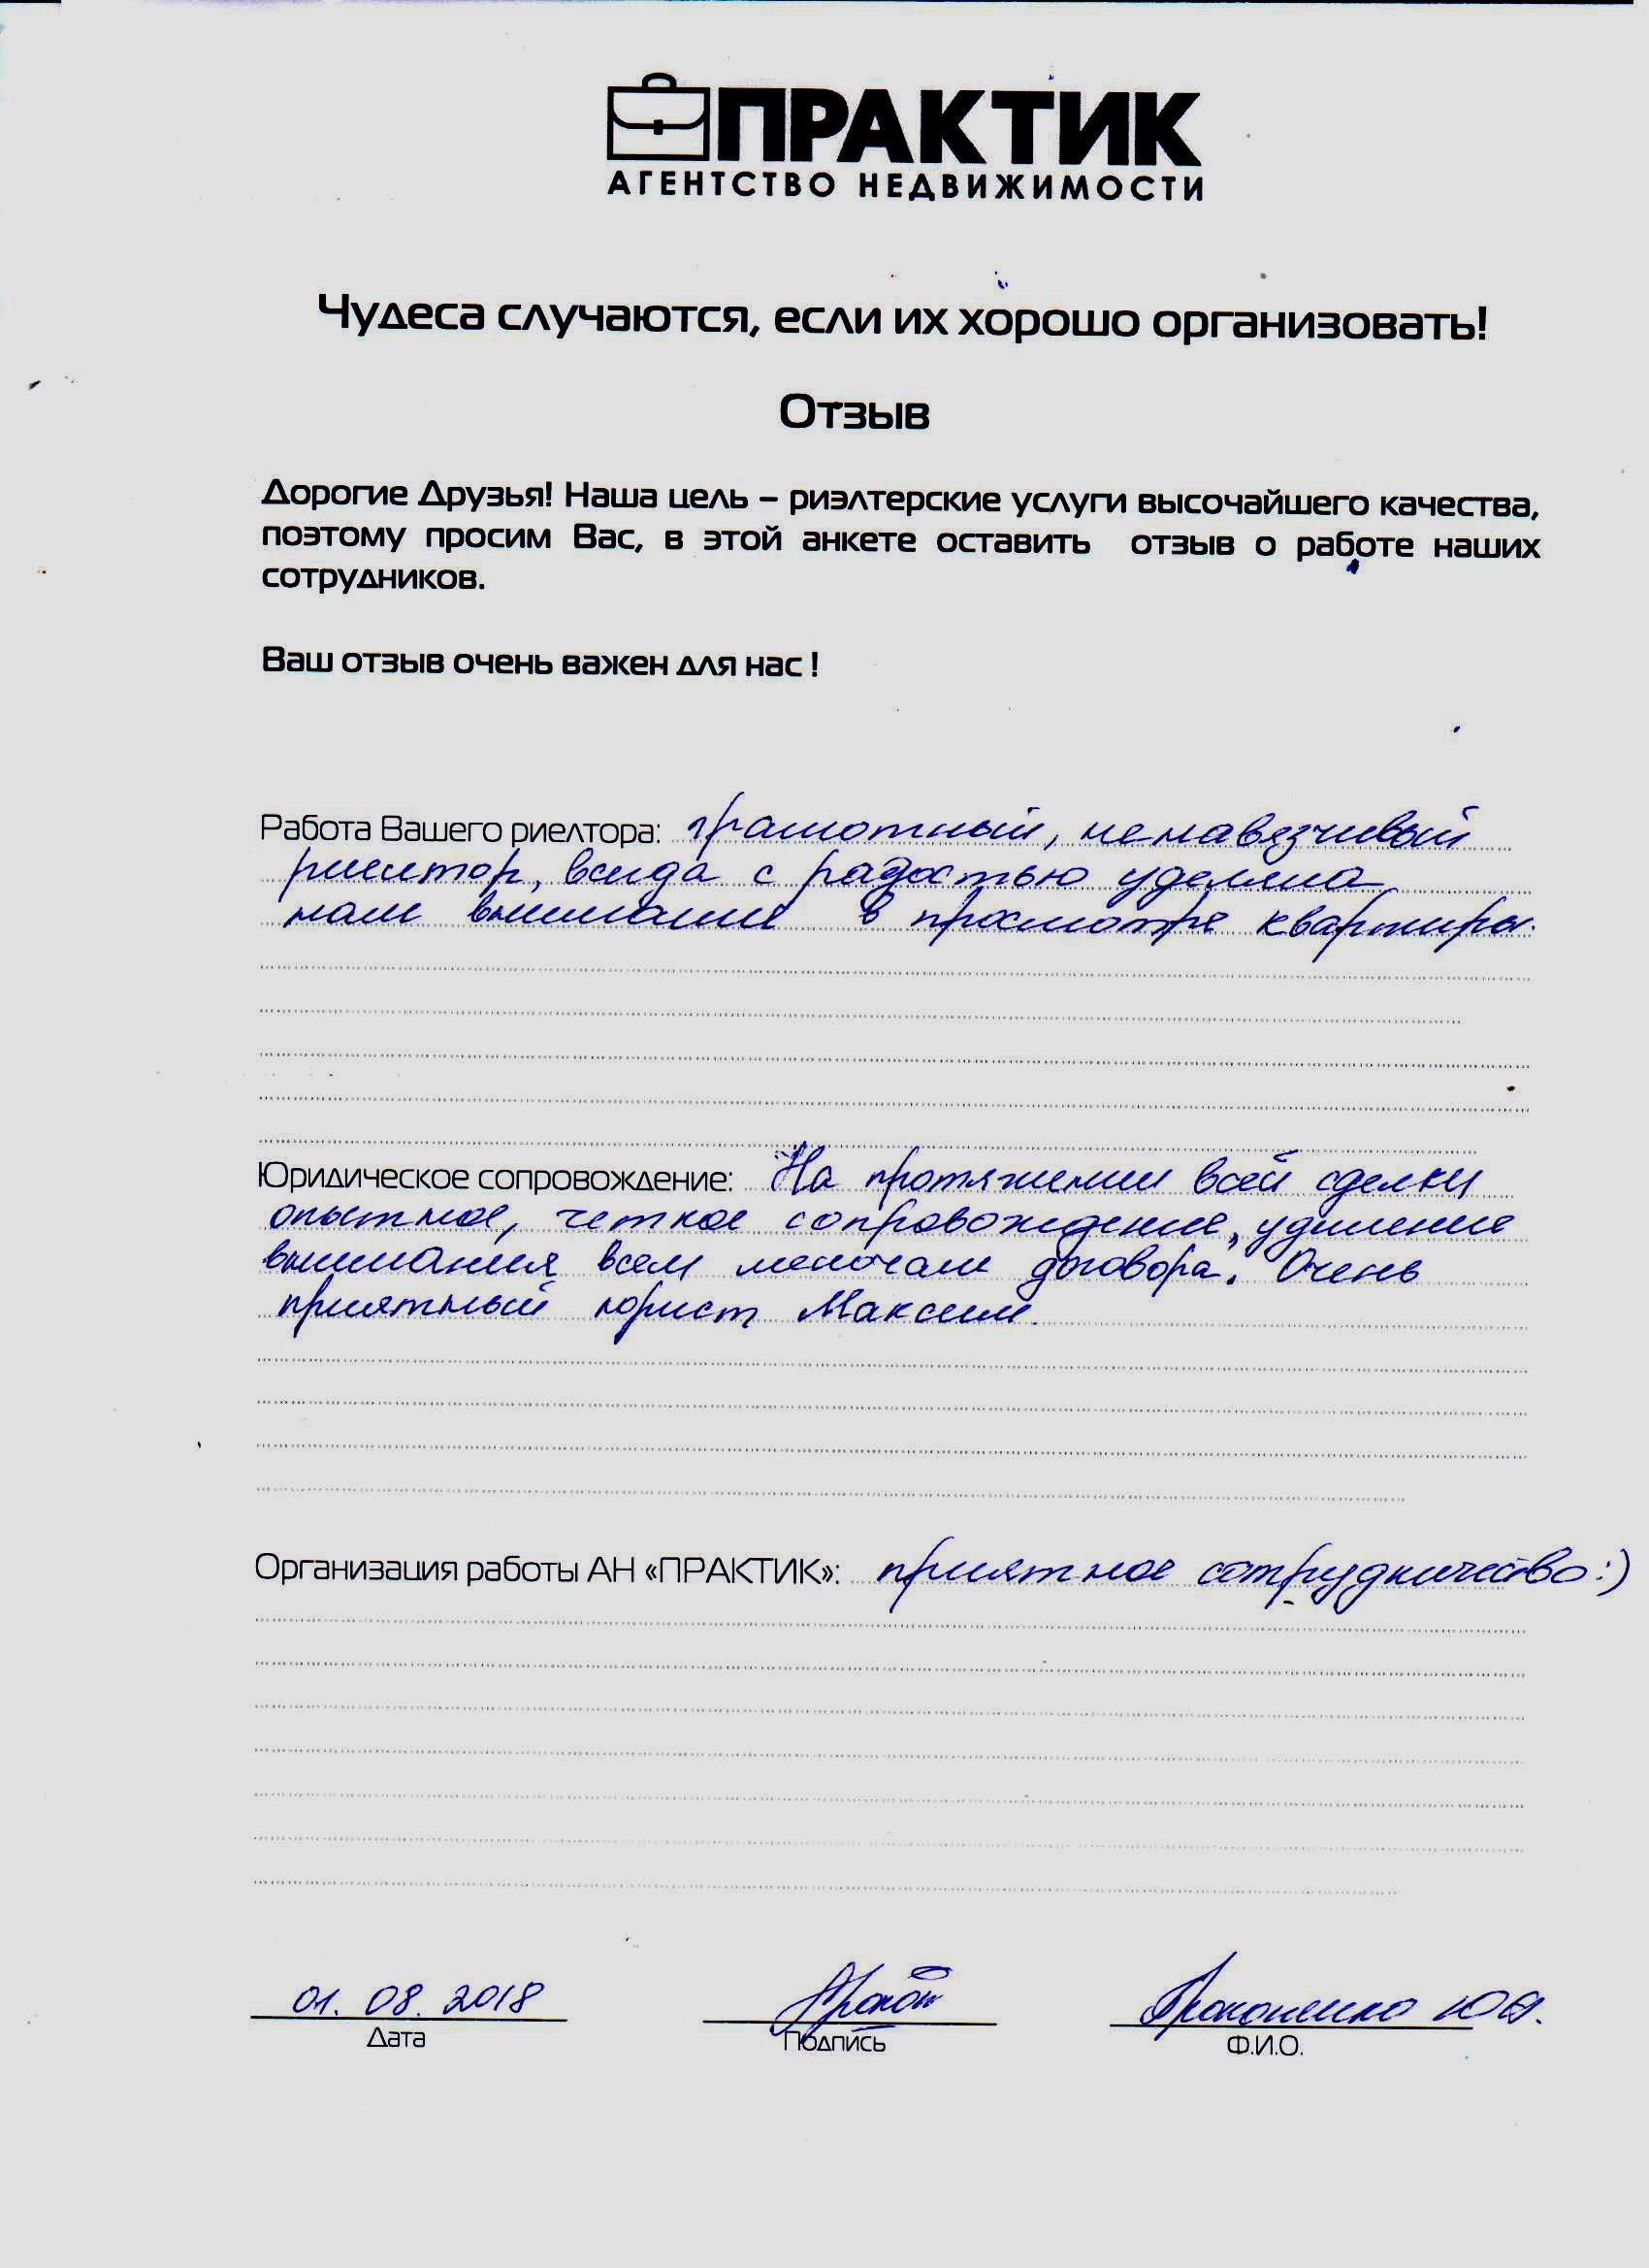 ПРАКТИК
АГЕНТСТВО НЕДВИЖИМОСТИ
Чудеса случаются, если их хорошо организовать!
Отзыв
Дорогие Друзья! Наша цель – риэлтерские услуги высочайшего качества,
поэтому просим Вас, в этой анкете оставить отзыв о работе наших
сотрудников.
Ваш отзыв очень важен для нас !
Работа Вашего риелтора: грамотный, ненавязчивый
риелтор, всегда с радостью уделяла
нам внимание в просмотре квартиры.
Юридическое сопровождение: На протяжении всей сделки
опытное, четкое сопровождение, уделение
внимания всем мелочам договора. Очень
приятный юрист Максим.
Организация работы АН «ПРАКТИК»: приятное сотрудничество :)
01.08.2018 Прокопенко
Дата Подпись Ф.И.О.